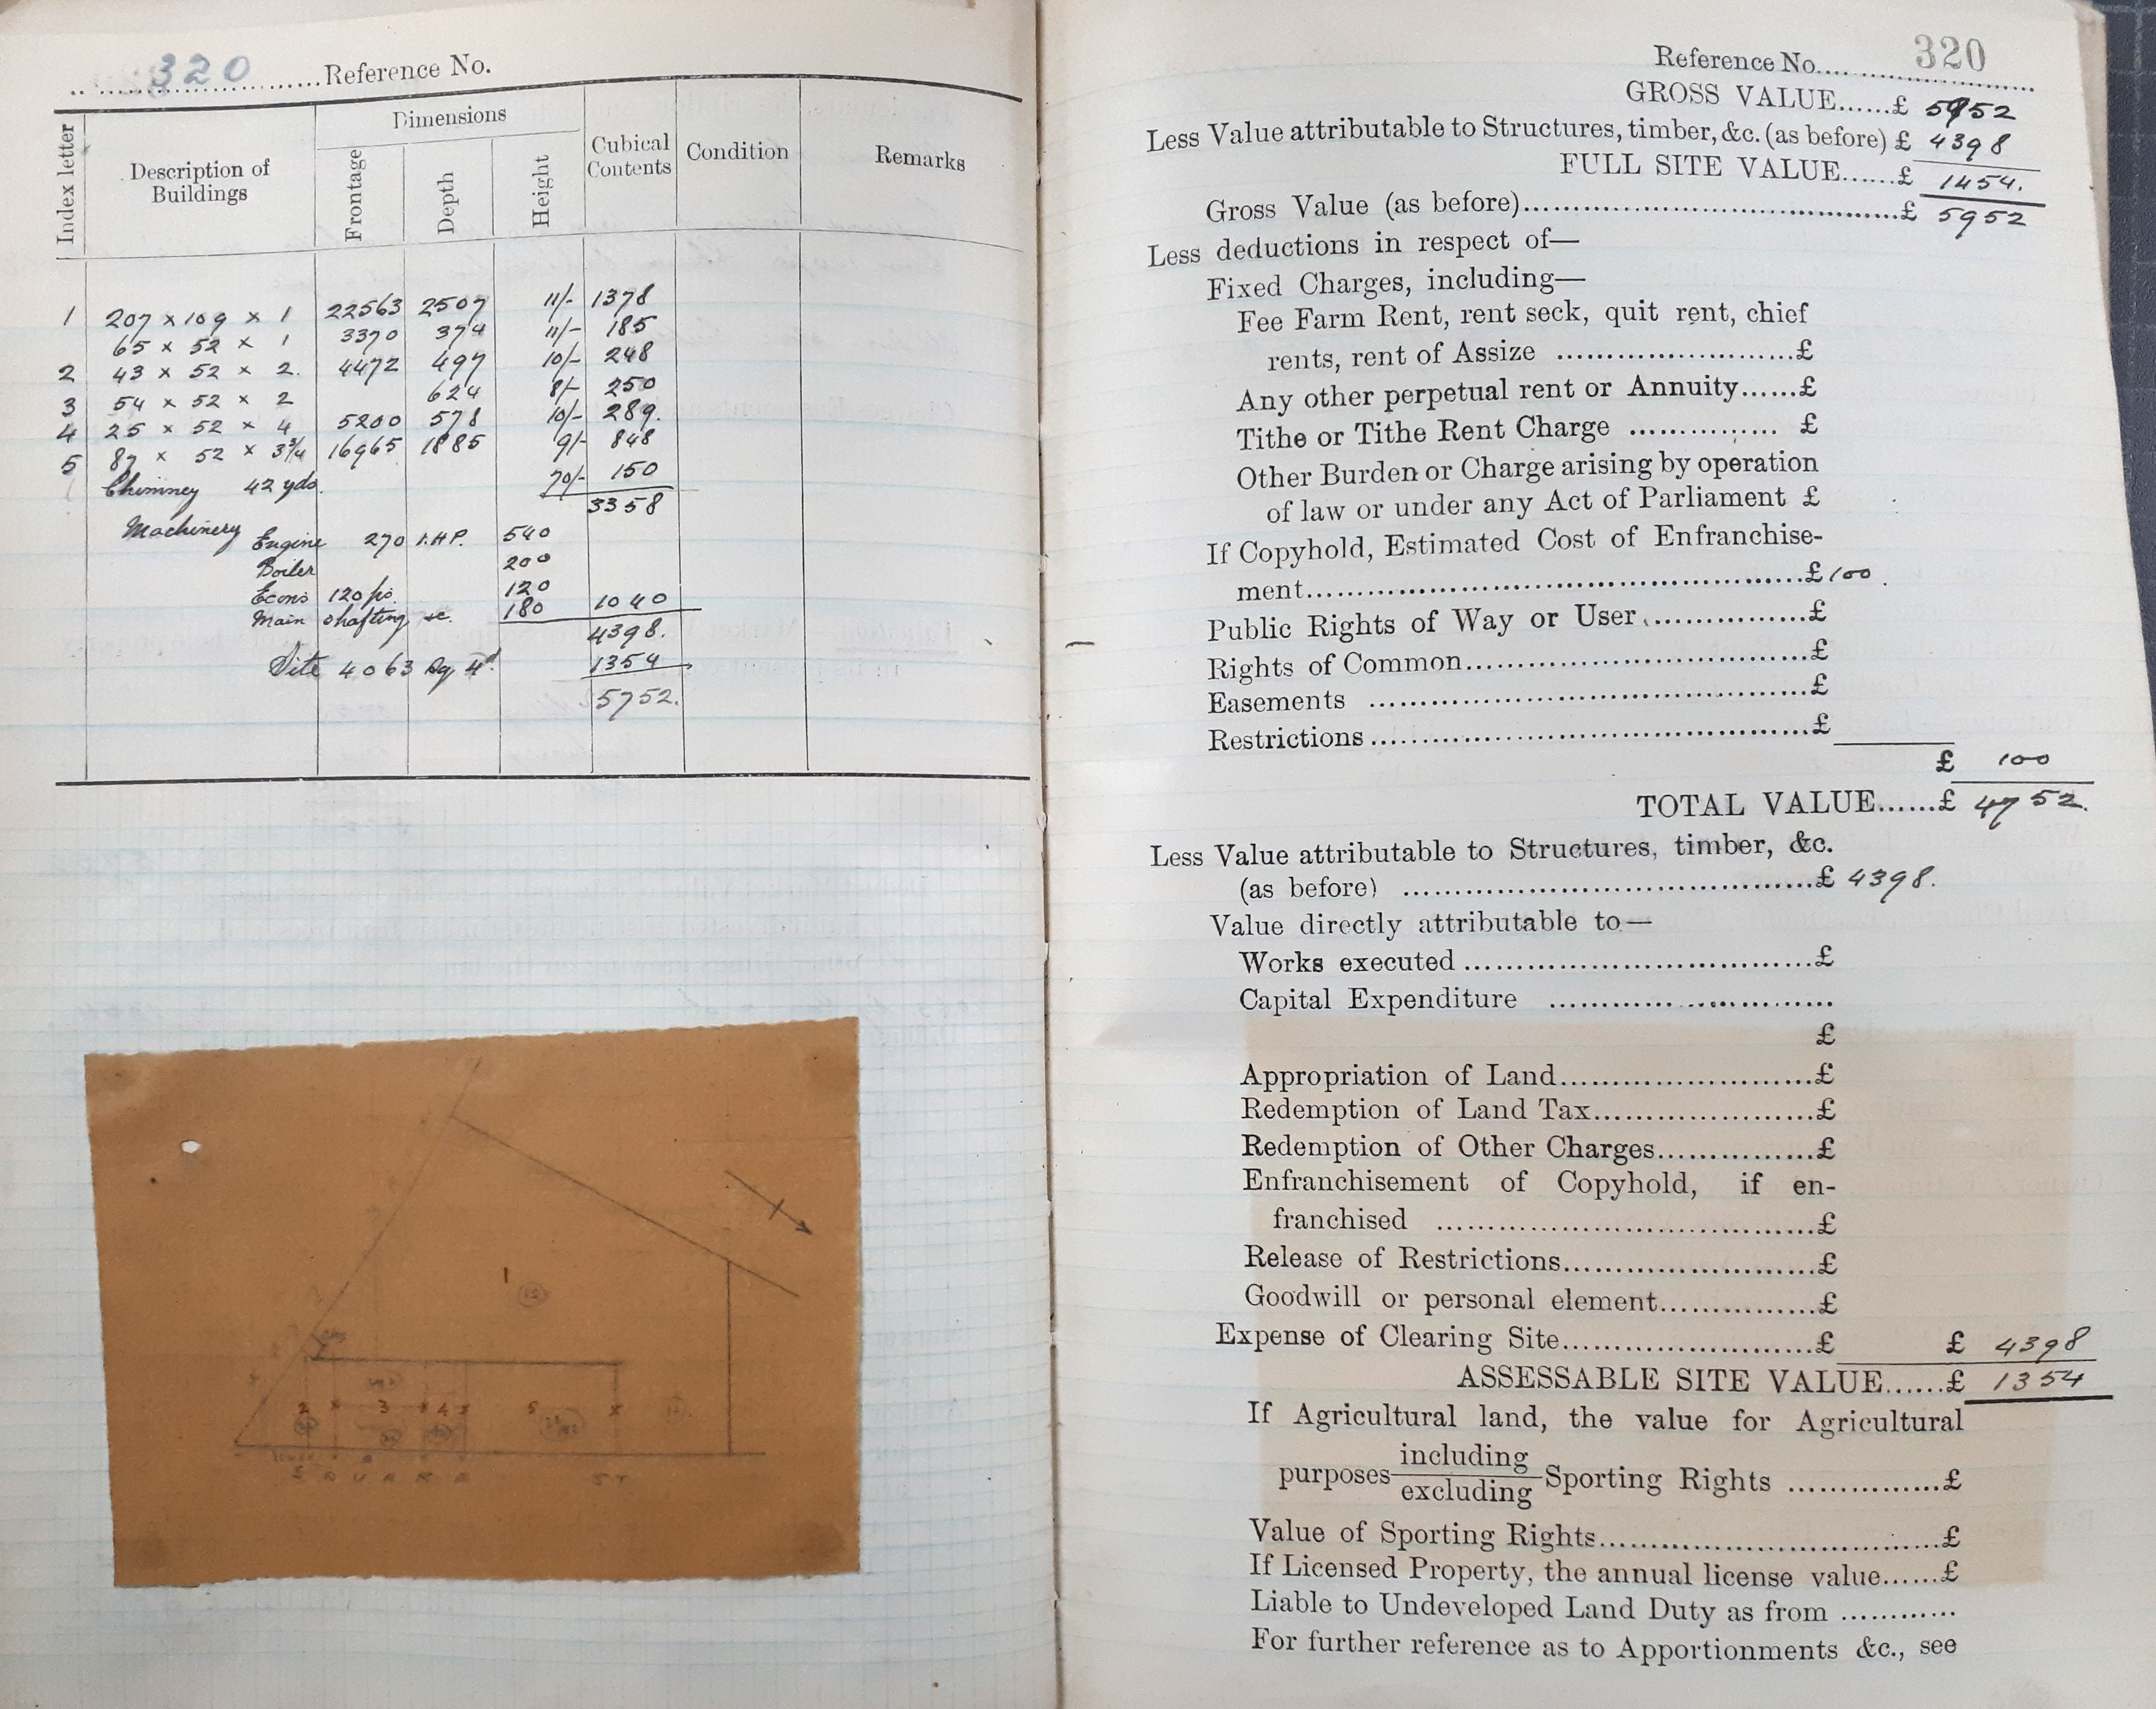 320 Reference No.
Index letter
Description of Buildings
Dimensions
Frontage
Depth
Height
Cubical Contents
Condition
Remarks
1 207 x 109 x 1 22563 2507 11/- 1378
65 x 52 x 1 3370 374 11/- 185
2 43 x 52 x 2. 4472 497 10/- 248
3 54 x 52 x 2 624 8/- 250
4 25 x 52 x 4 5200 578 10/- 289.
5 87 x 52 x 3¾ 16965 1885 9/- 848
Chimney 42 yds. 70/- 150
3358
Machinery Engine 270 I.H.P. 540
Boiler 200
Econs 120 ps. 120
Main shafting &c. 180 1040
4398.
Site 4063 Sq Yd. 1354
5752.
1
2 x 3 x 4 x 5 x
SQUARE ST
Reference No.... 320
GROSS VALUE......£ 5952
Less Value attributable to Structures, timber, &c. (as before) £ 4398
FULL SITE VALUE......£ 1454.
Gross Value (as before)......£ 5952
Less deductions in respect of—
Fixed Charges, including—
Fee Farm Rent, rent seck, quit rent, chief
rents, rent of Assize ......£
Any other perpetual rent or Annuity......£
Tithe or Tithe Rent Charge ...... £
Other Burden or Charge arising by operation
of law or under any Act of Parliament £
If Copyhold, Estimated Cost of Enfranchise-
ment......£ 100.
Public Rights of Way or User......£
Rights of Common......£
Easements ......£
Restrictions......£
£ 100
TOTAL VALUE......£ 4752.
Less Value attributable to Structures, timber, &c.
(as before) ......£ 4398.
Value directly attributable to—
Works executed......£
Capital Expenditure ......
£
Appropriation of Land......£
Redemption of Land Tax......£
Redemption of Other Charges......£
Enfranchisement of Copyhold, if en-
franchised ......£
Release of Restrictions......£
Goodwill or personal element......£
Expense of Clearing Site......£ £ 4398
ASSESSABLE SITE VALUE......£ 1354
If Agricultural land, the value for Agricultural
purposes including
excluding Sporting Rights ......£
Value of Sporting Rights......£
If Licensed Property, the annual license value......£
Liable to Undeveloped Land Duty as from ......
For further reference as to Apportionments &c., see